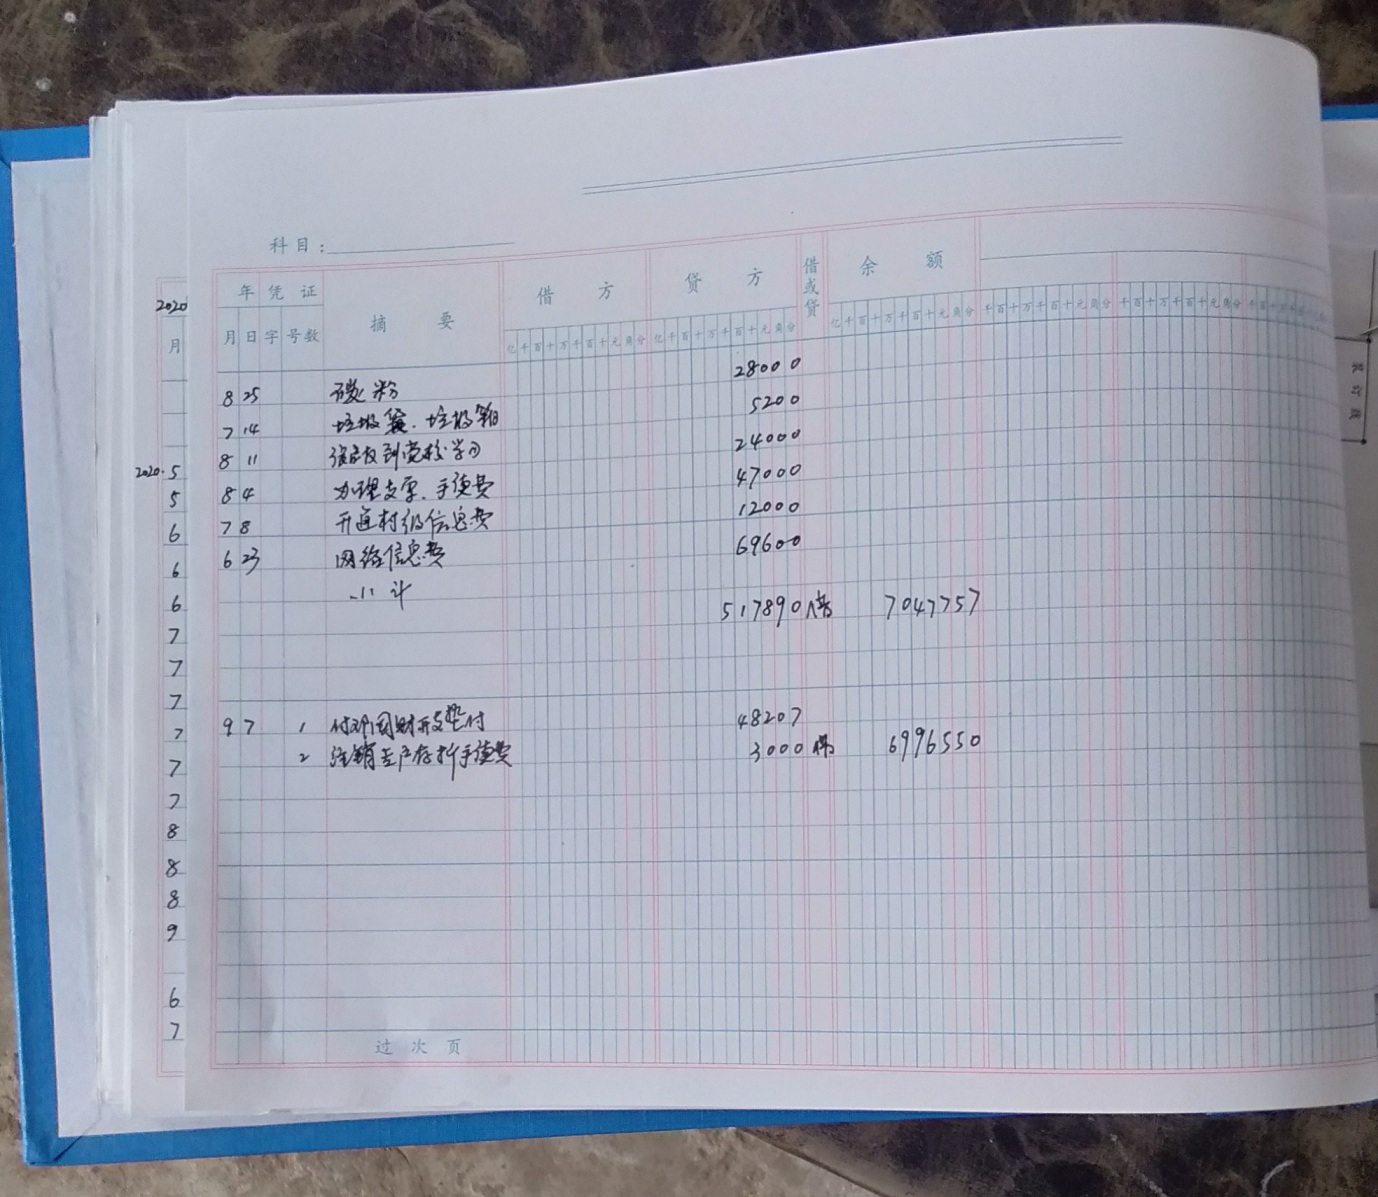 科目：
年 凭证 摘要 借方 贷方 借或贷 余额
月 日 字 号数 亿千百十万千百十元角分 亿千百十万千百十元角分 亿千百十万千百十元角分 千百十万千百十元角分 千百十万千百十元角分
8 25 碳粉 28000
7 14 垃圾袋、垃圾箱 5200
8 11 到党校学习 24000
8 4 办理支票、手续费 47000
7 8 开通村级信息费 12000
6 23 网络信息费 69600
小计 517890 借 7047757
9 7 1 付 开支垫付 48207
2 注销 存折手续费 3000 借 6996550
过次页
2020
月
2020.5
5
6
6
6
7
7
7
7
7
7
8
8
8
9
6
7
装订线